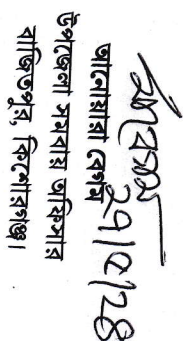 ২৭/৫/২৪
আনোয়ারা বেগম
উপজেলা সমবায় অফিসার
বাজিতপুর, কিশোরগঞ্জ।